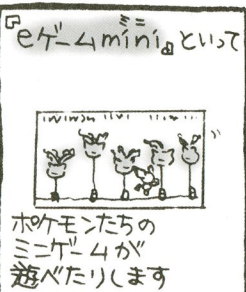 『eゲームmini』といって
ミニ
ポケモンたちの
ミニゲームが
遊べたりします